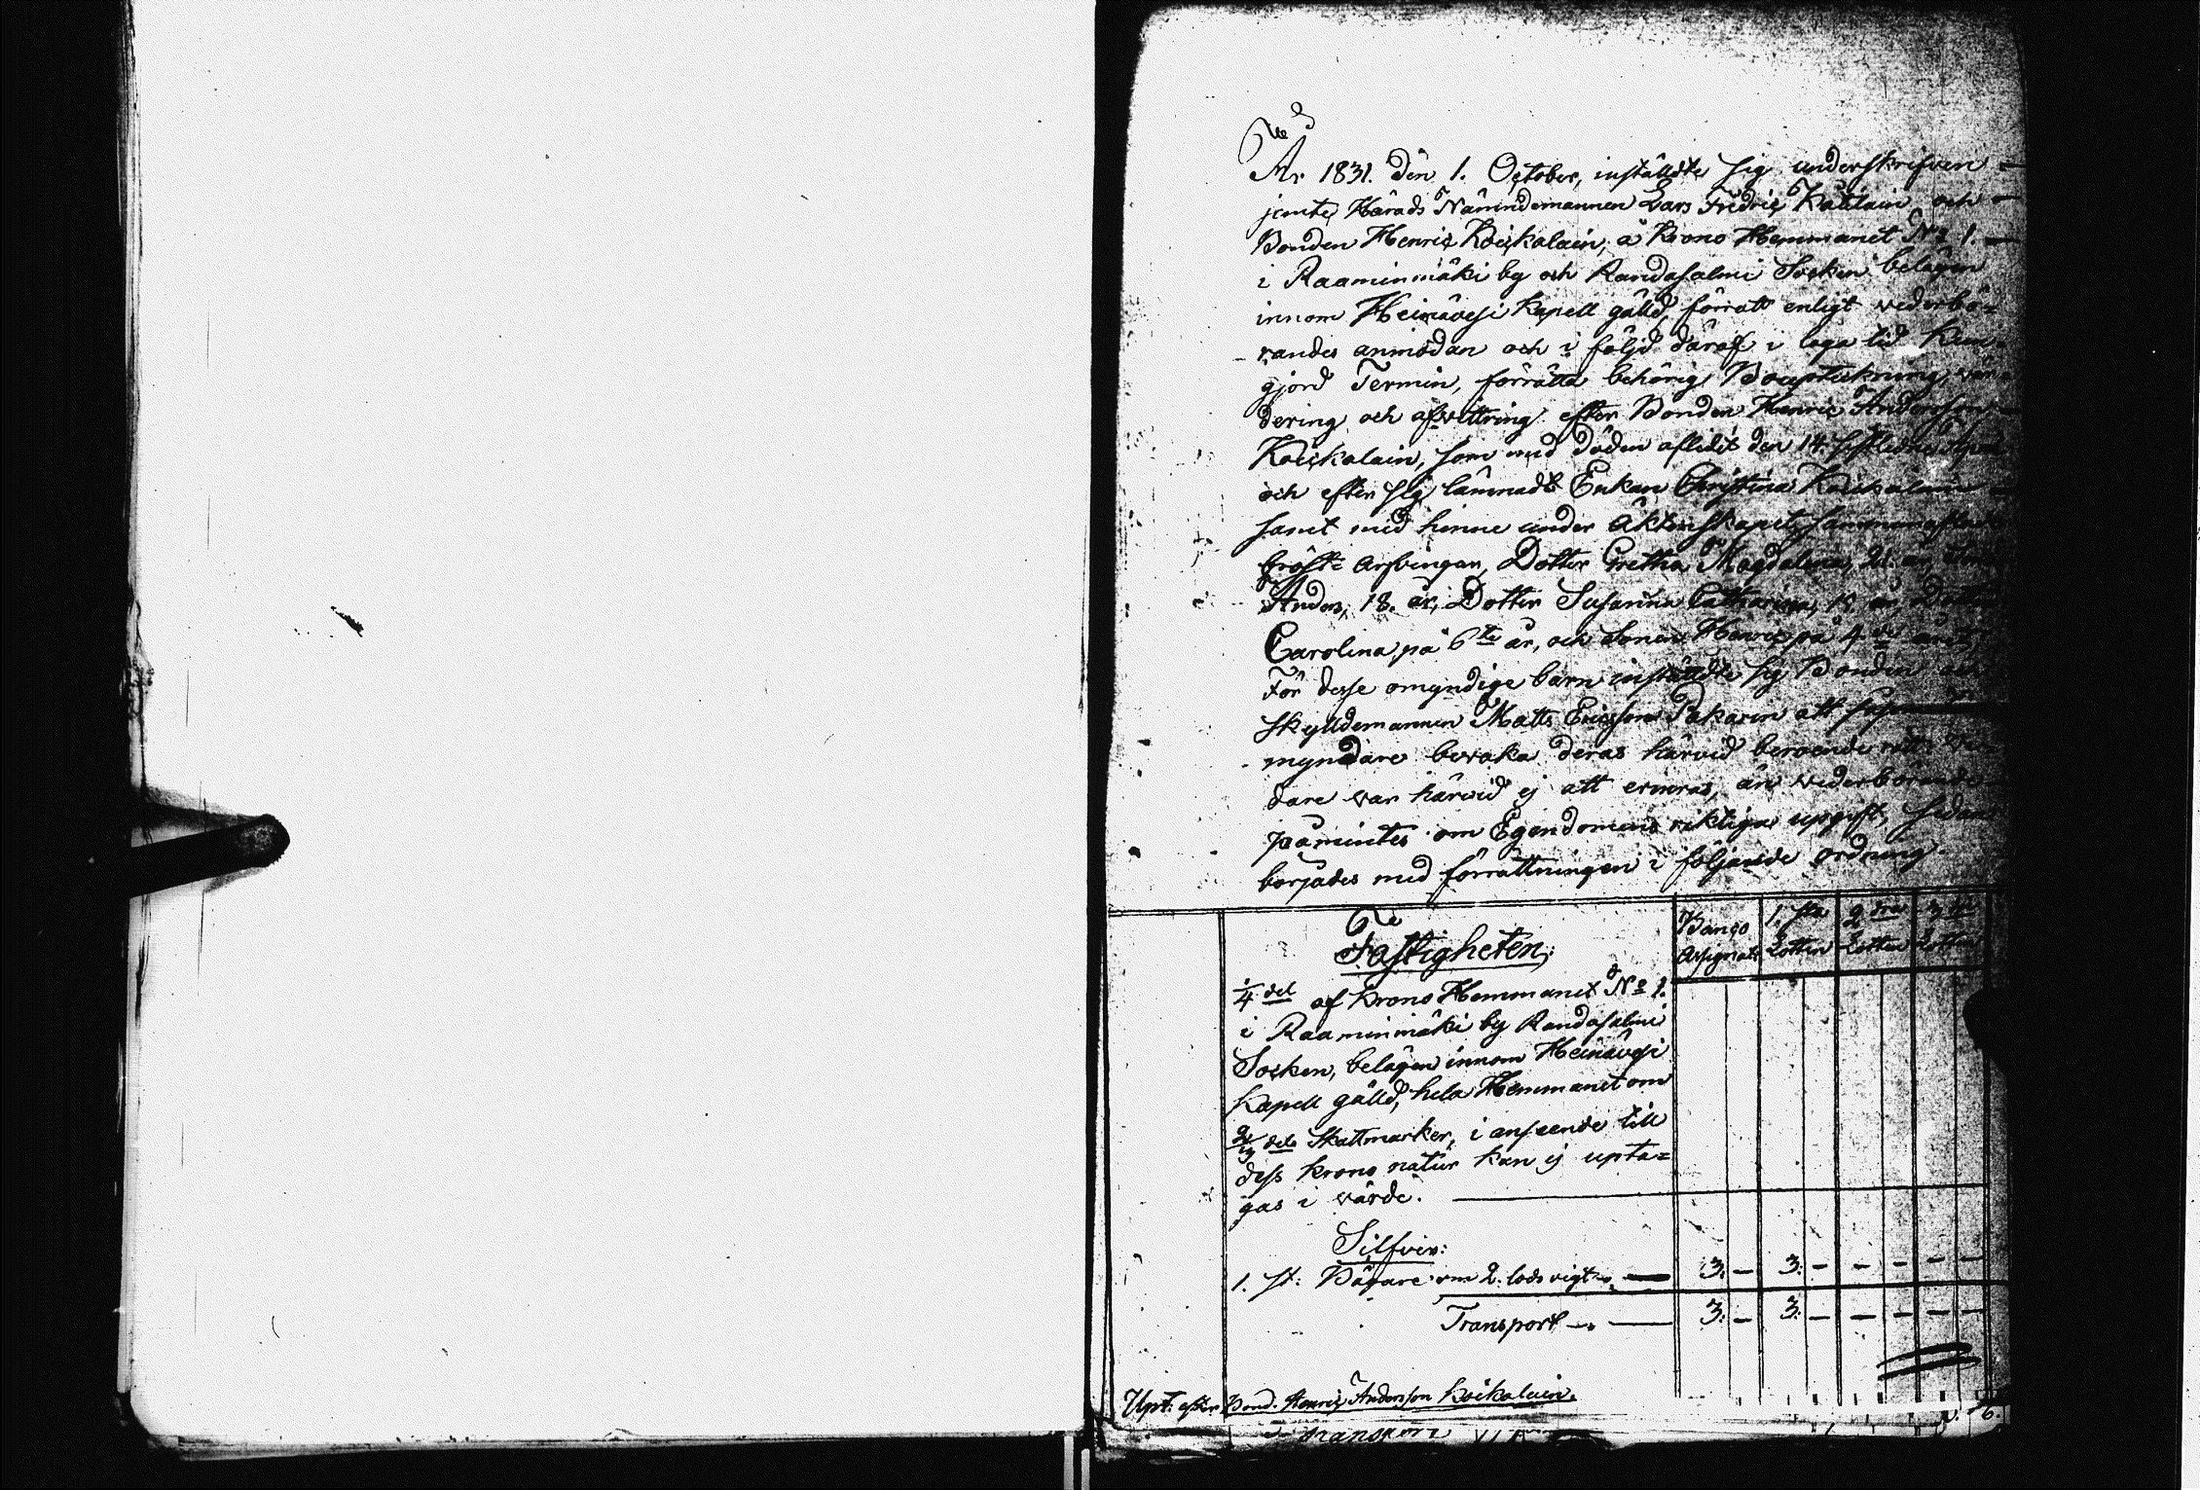 År 1831. den 1. October, inställdte sig underskrifven
jemte Härads Nämndemannen Lars Fredric och
Bonden Henric Koickalain, å Krono Hemmanet N:o 1.
i Raaminmäki by och Randasalmi Socken belägen
innom Heinävesi Kapell gälld, förrätt enligt vederbö=
randes anmodan och i följd däraf i laga tid kun-
gjord Termin, förrätta behörig Bouptekning, vär-
dering och afvittring efter Bonden Henric Andersson
Koickalain, som med döden aflidit den 14. sistledne
och efter sig lämnadt Enkan Christina Koickalain
samt med henne under äktenskapet sammanaflade
bröst= arfvingar, Dotter Gretha Magdalena, 21. år, Son
Anders, 18. år, Dotter Susanna Catharina, 15 år, Dotter
Carolina på 6te år, och Sonen Henric på 4de året,
För desse omyndige barn inställdte sig Bonden
skylldemannen Matts Ericsson Pakarin att såsom
myndare bevaka deras härvid beroende rätt
dare var härvid ej att erinras, än vederbörande
påmintes om Egendomens riktiga upgift, sedan
börjades med förrättningen i följande ordning
Banco Assignats 1:sta Lotten 2:dra Lotten 3:dje Lotten
Fastigheten:
1/4 del af Krono Hemmanet N:o 1.
i Raaminmäki by Randasalmi
Socken, belägen innom Heinävesi
Kapell gälld, hela Hemmanet om
dels Skattmarker, i anseende till
dess krono natur kan ej upta=
gas i värde.
Silfver:
1. st: Bägare om 2. lods vigt 3. – 3. – – – – –
Transport 3. – 3. – – – – –
Upt: efter Bond. Henric Andersson Koikalain.
Transport